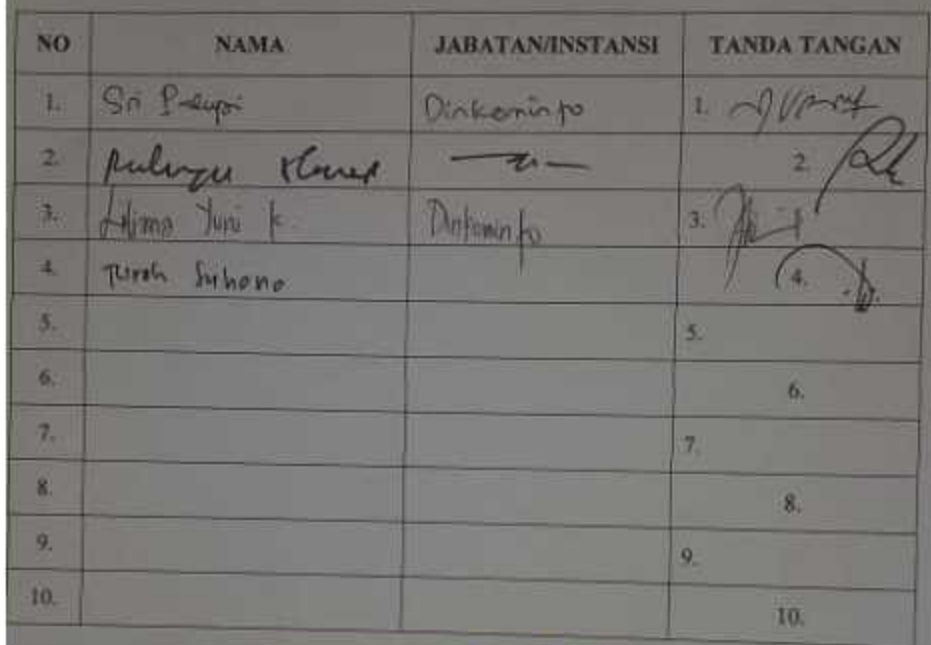 NO NAMA JABATAN/INSTANSI TANDA TANGAN
1. Sri Dinkominfo 1.
2. 2.
3. Yuni K. Dinkominfo 3.
4. Suhono 4.
5. 5.
6. 6.
7. 7.
8. 8.
9. 9.
10. 10.